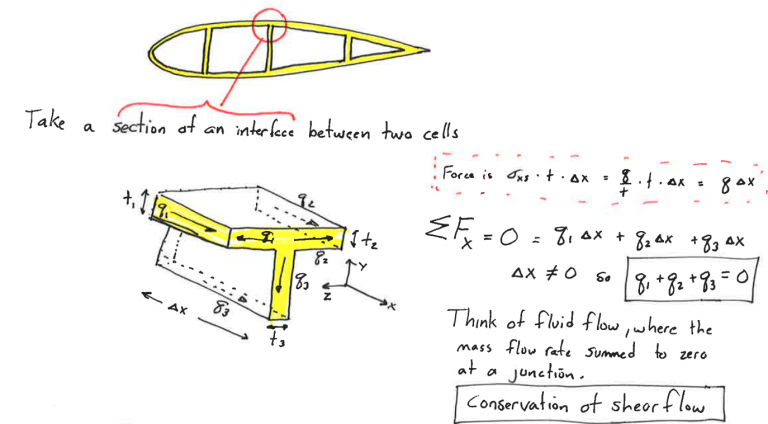 Take a section of an interface between two cells
Force is σxs · t · Δx = q/t · t · Δx = q Δx
t₁
q₁
q₂
q₁
t₂
q₂
q₃
Y
Z
X
q₃
Δx
t₃
ΣFx = 0 = q₁ Δx + q₂ Δx + q₃ Δx
Δx ≠ 0 so q₁ + q₂ + q₃ = 0
Think of fluid flow, where the
mass flow rate summed to zero
at a junction.
Conservation of shear flow